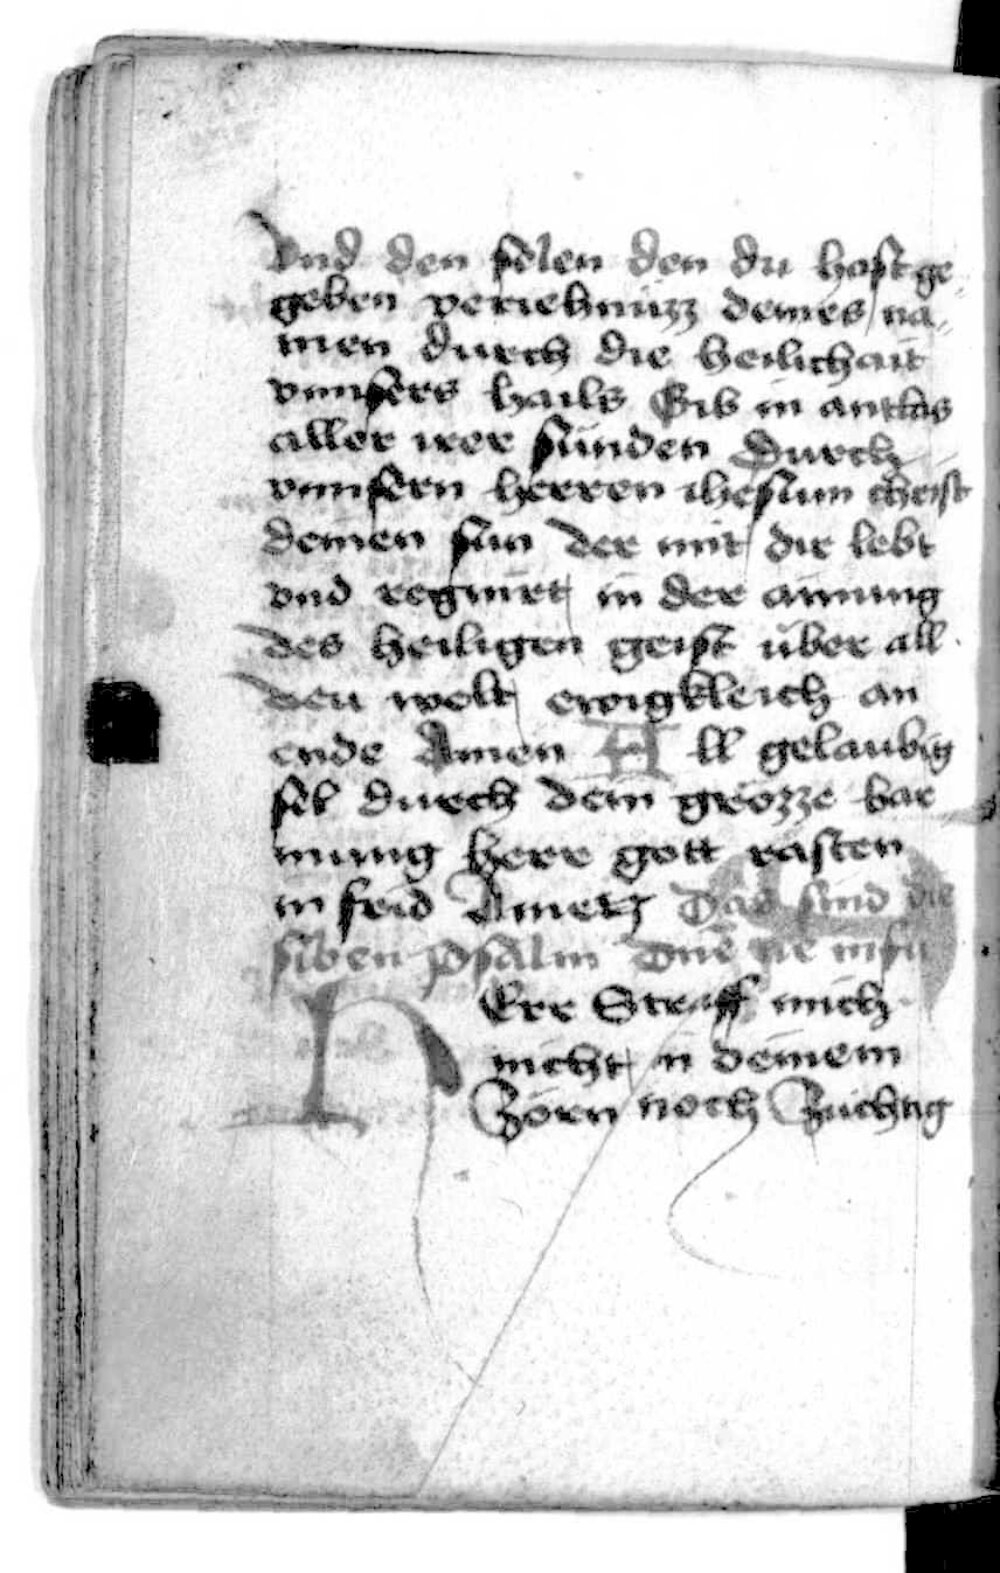 Vnd den selen den du hast ge
geben veriehnüzz deines na
men durch die heilichait
vnnsers hails Gib in antlas
aller irer sünden Durch
vnnsern herren ihesum christ
deinen sun der mit dir lebt
vnd regnirt in der ainung
des heiligen geist über all
den welt ewigkleich an
ende Amen All gelaubig
sel durch dein grözze bar
mung herr gott rasten
in frid Amen Das sind die
siben psalm Dne ne in fu
HErr Straff mich
nicht in deinem
Zorn noch Züchtig